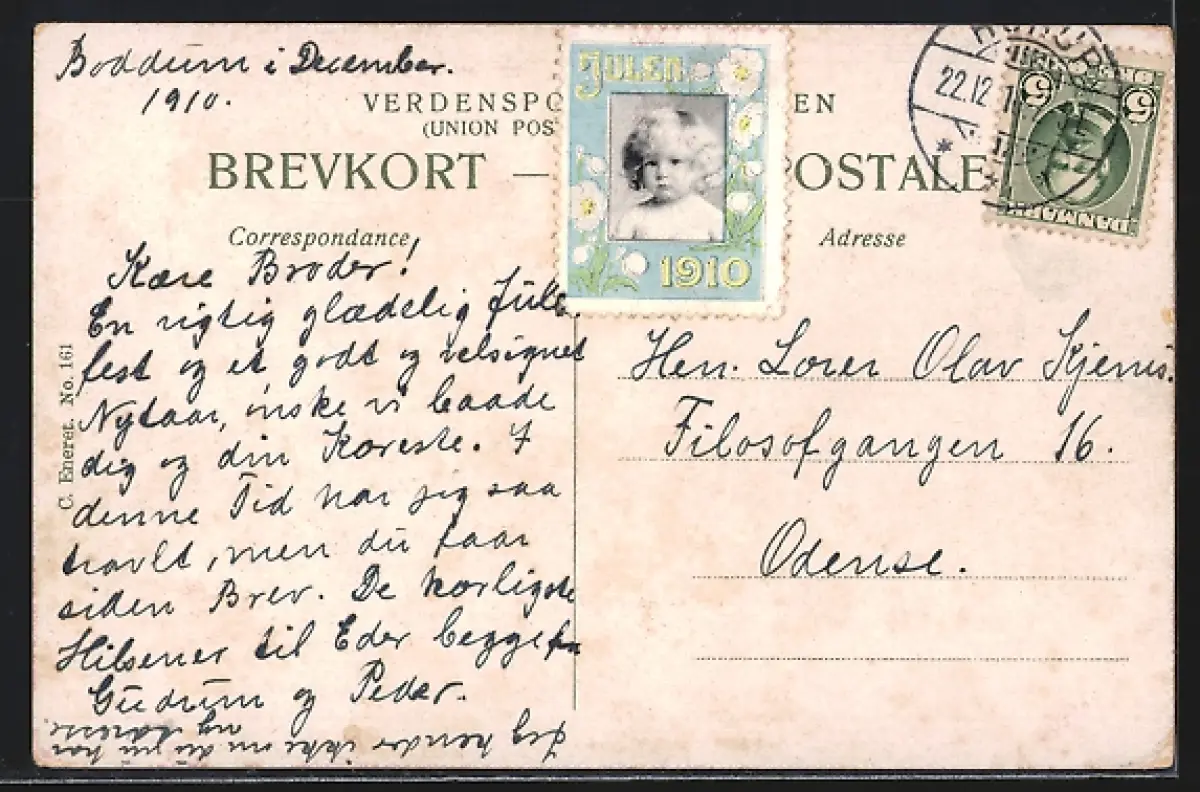 Boddum i December.
1910.
VERDENSPO EN
(UNION POS
BREVKORT — POSTALE
Correspondance
Adresse
JULEN
1910
22.12.1
5 5
DANMARK
C. Eneret. No. 161
Kære Broder!
En rigtig glædelig Jule
fest og et godt og velsignet
Nytaar, ønske vi baade
dig og din Kæreste. I
denne Tid har jeg saa
travlt, men du faar
siden Brev. De kærligste
Hilsener til Eder begge fra
Gudrum og Peder.
Jeg kender ikke om du nu har
Hen. Lærer Olav Kjems.
Filosofgangen 16.
Odense.